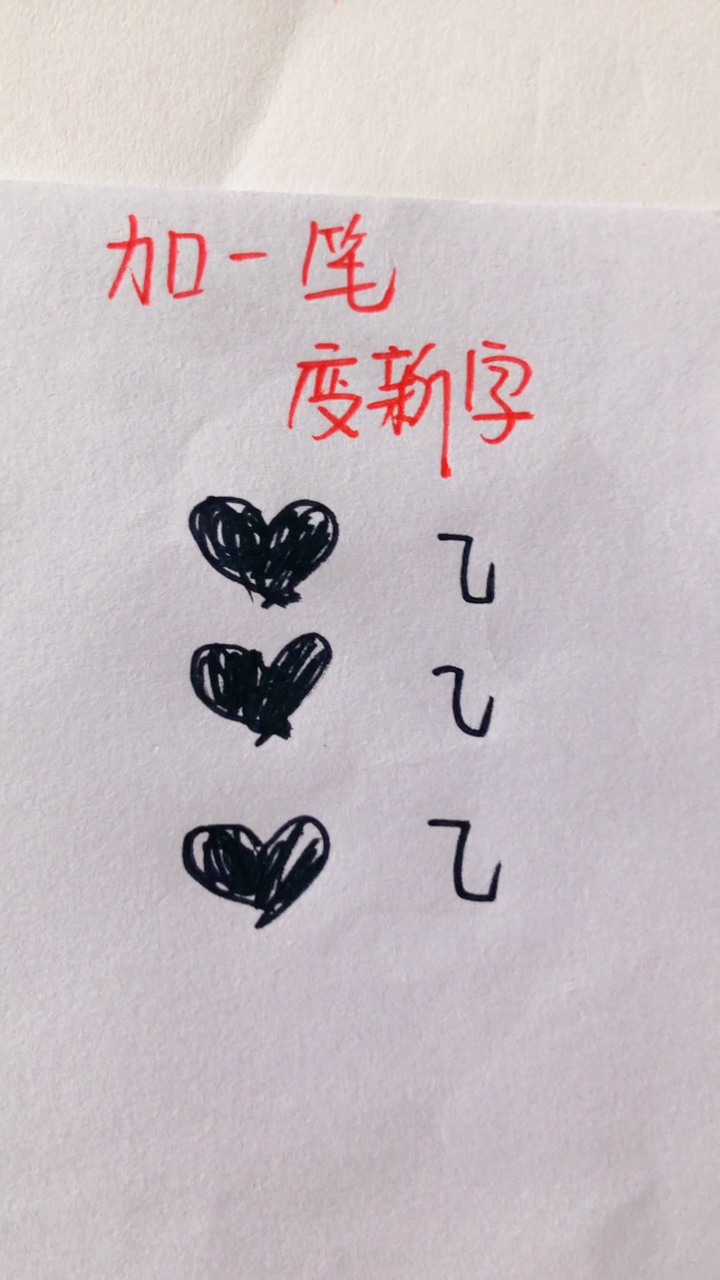 加一笔
变新字
乙
乙
乙